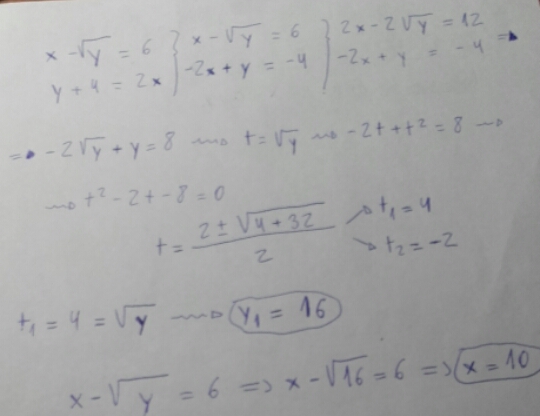 x - √y = 6 } x - √y = 6 } 2x - 2√y = 12
y + 4 = 2x } -2x + y = -4 } -2x + y = -4 ⇒
⇒ -2√y + y = 8 ⟿ t = √y ⟿ -2t + t² = 8 ⟿
⟿ t² - 2t - 8 = 0
t = (2 ± √(4 + 32)) / 2 → t₁ = 4
→ t₂ = -2
t₁ = 4 = √y ⟿ y₁ = 16
x - √y = 6 ⇒ x - √16 = 6 ⇒ x = 10